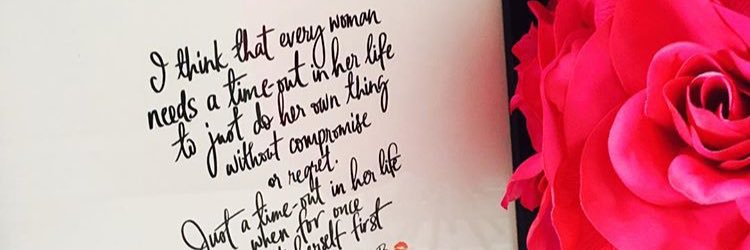 I think that every woman
needs a time-out in her life
to just do her own thing
without compromise
or regret.
Just a time-out in her life
when for once
herself first